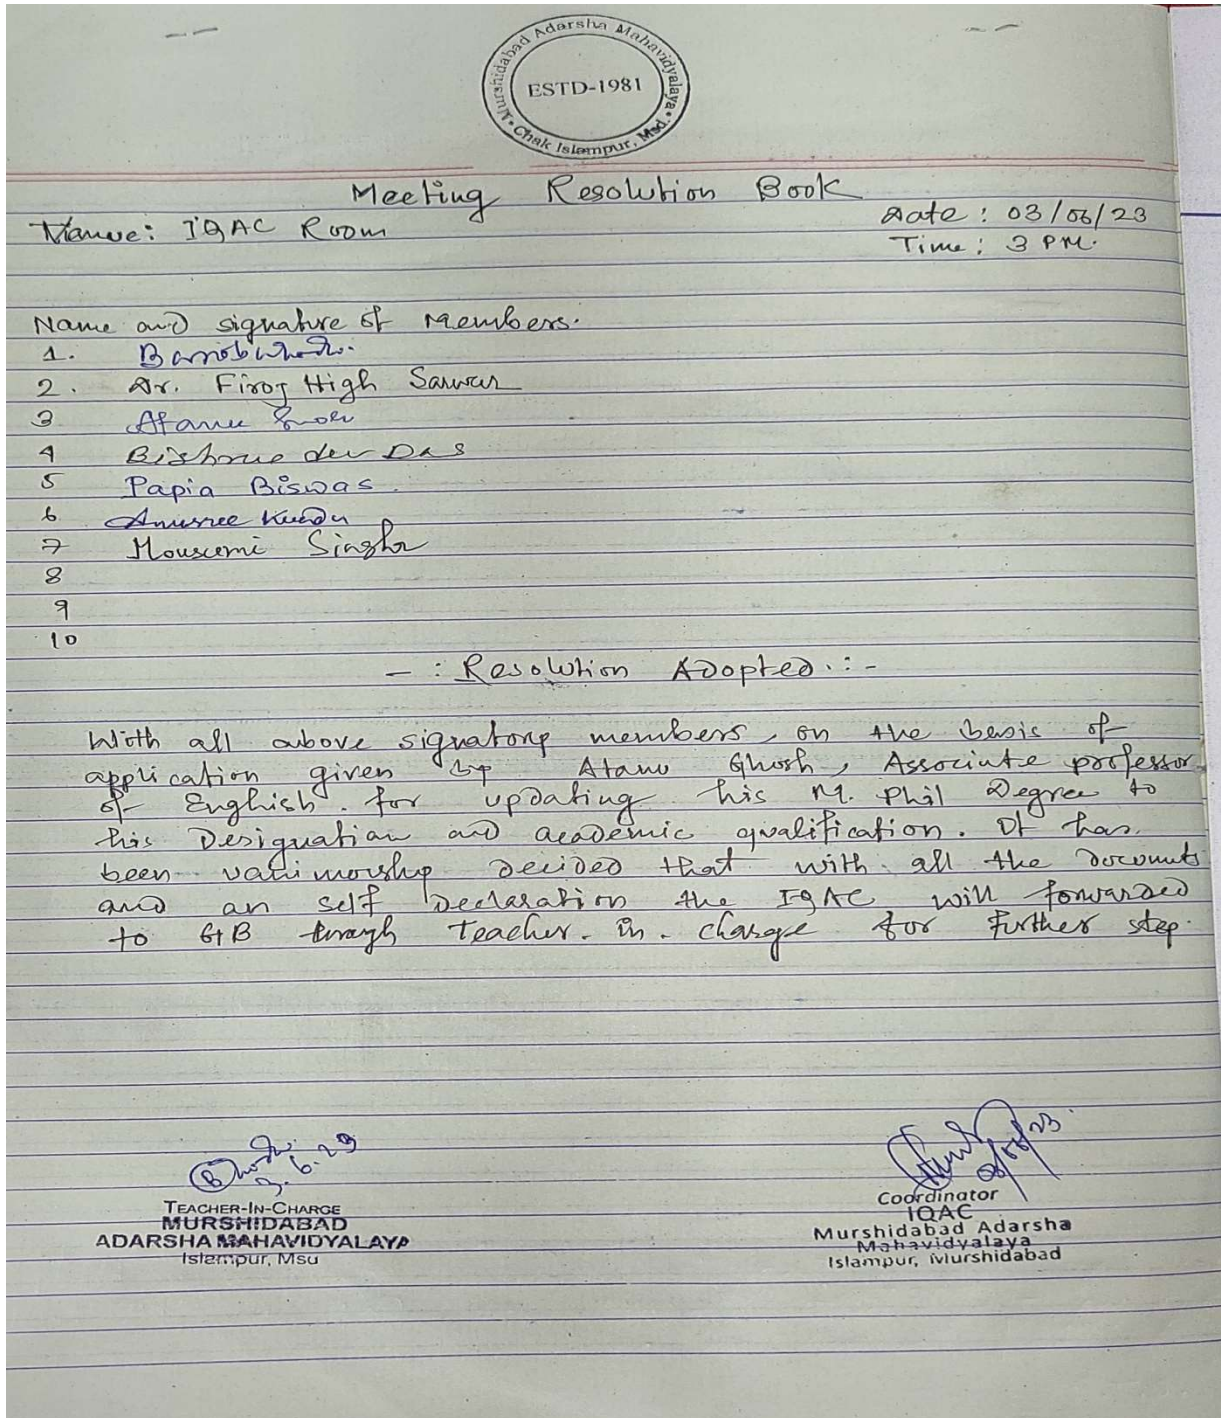 Murshidabad Adarsha Mahavidyalaya
ESTD-1981
Chak Islampur, Msd.
Meeting Resolution Book
Date : 03/06/23
: IQAC Room
Time : 3 PM.
Name and signature of Members.
1.
2. Dr. Firoj High Sarwar
3 Atanu
4 Das
5 Papia Biswas.
6 Anusree Kundu
7 Mousumi Singha
8
9
10
- : Resolution Adopted. : -
With all above signatory members, on the basis of
application given by Atanu Ghosh, Associate professor
of English. for updating his M. Phil Degree to
his Designation and academic qualification. It has
been decided that with all the documents
and an self Declaration the IQAC will forwarded
to GB through teacher. in. charge for further step.
3.6.23
03/06/23
TEACHER-IN-CHARGE
MURSHIDABAD
ADARSHA MAHAVIDYALAYA
Islampur, Msd
Coordinator
IQAC
Murshidabad Adarsha
Mahavidyalaya
Islampur, Murshidabad